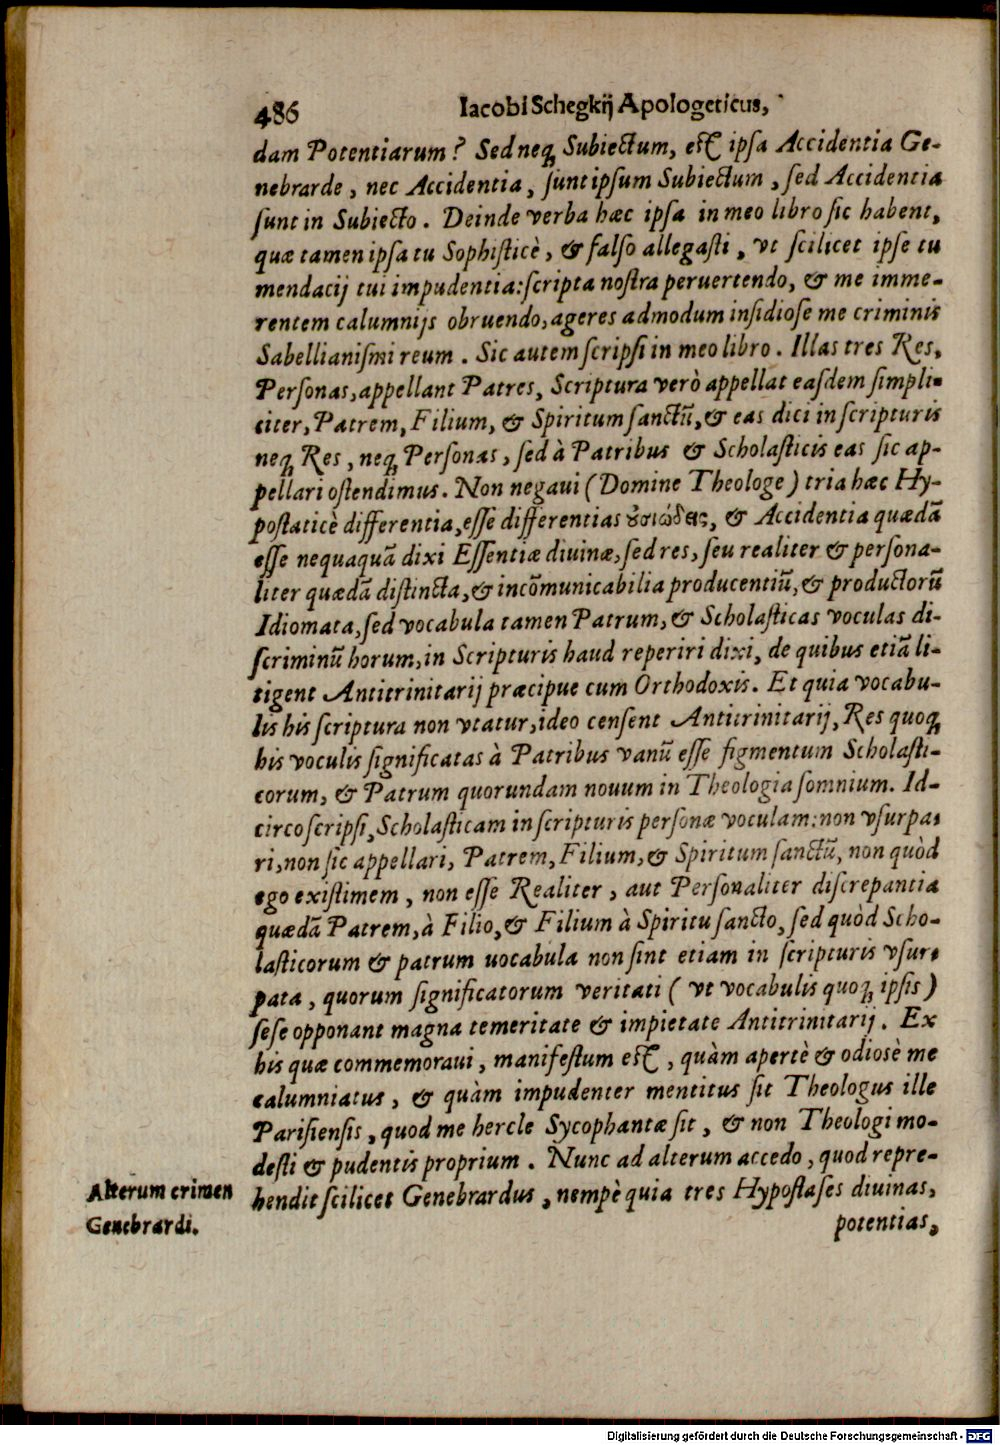 486 Iacobi Schegkij Apologeticus,
dam Potentiarum? Sed neq; Subiectum, est ipsa Accidentia Ge-
nebrarde, nec Accidentia, sunt ipsum Subiectum, sed Accidentia
sunt in Subiecto. Deinde verba hæc ipsa in meo libro sic habent,
quæ tamen ipsa tu Sophisticè, & falso allegasti, vt scilicet ipse tu
mendacij tui impudentia: scripta nostra peruertendo, & me imme-
rentem calumnijs obruendo, ageres admodum insidiose me criminis
Sabellianismi reum. Sic autem scripsi in meo libro. Illas tres Res,
Personas, appellant Patres, Scriptura verò appellat easdem simpli-
citer, Patrem, Filium, & Spiritum sanctũ, & eas dici in scripturis
neq; Res, neq; Personas, sed à Patribus & Scholasticis eas sic ap-
pellari ostendimus. Non negaui (Domine Theologe) tria hæc Hy-
postaticè differentia, esse differentias ȣ̓σιώδεις, & Accidentia quædã
esse nequaquã dixi Essentiæ diuinæ, sed res, seu realiter & persona-
liter quædã distincta, & incõmunicabilia producentiũ, & productorũ
Idiomata, sed vocabula tamen Patrum, & Scholasticas voculas di-
scriminũ horum, in Scripturis haud reperiri dixi, de quibus etiã li-
tigent Antitrinitarij præcipue cum Orthodoxis. Et quia vocabu-
lis his scriptura non vtatur, ideo censent Antitrinitarij, Res quoq;
his voculis significatas à Patribus vanũ esse figmentum Scholasti-
corum, & Patrum quorundam nouum in Theologia somnium. Id-
circo scripsi, Scholasticam in scripturis personæ voculam: non vsurpa-
ri, non sic appellari, Patrem, Filium, & Spiritum sanctũ, non quòd
ego existimem, non esse Realiter, aut Personaliter discrepantia
quædã Patrem, à Filio, & Filium à Spiritu sancto, sed quòd Scho-
lasticorum & patrum uocabula non sint etiam in scripturis vsur-
pata, quorum significatorum veritati (vt vocabulis quoq; ipsis)
sese opponant magna temeritate & impietate Antitrinitarij. Ex
his quæ commemoraui, manifestum est, quàm apertè & odiosè me
calumniatus, & quàm impudenter mentitus sit Theologus ille
Parisiensis, quod me hercle Sycophantæ sit, & non Theologi mo-
desti & pudentis proprium. Nunc ad alterum accedo, quod repre-
hendit scilicet Genebrardus, nempè quia tres Hypostases diuinas,
potentias,
Alterum crimen
Genebrardi.
Digitalisierung gefördert durch die Deutsche Forschungsgemeinschaft - DFG